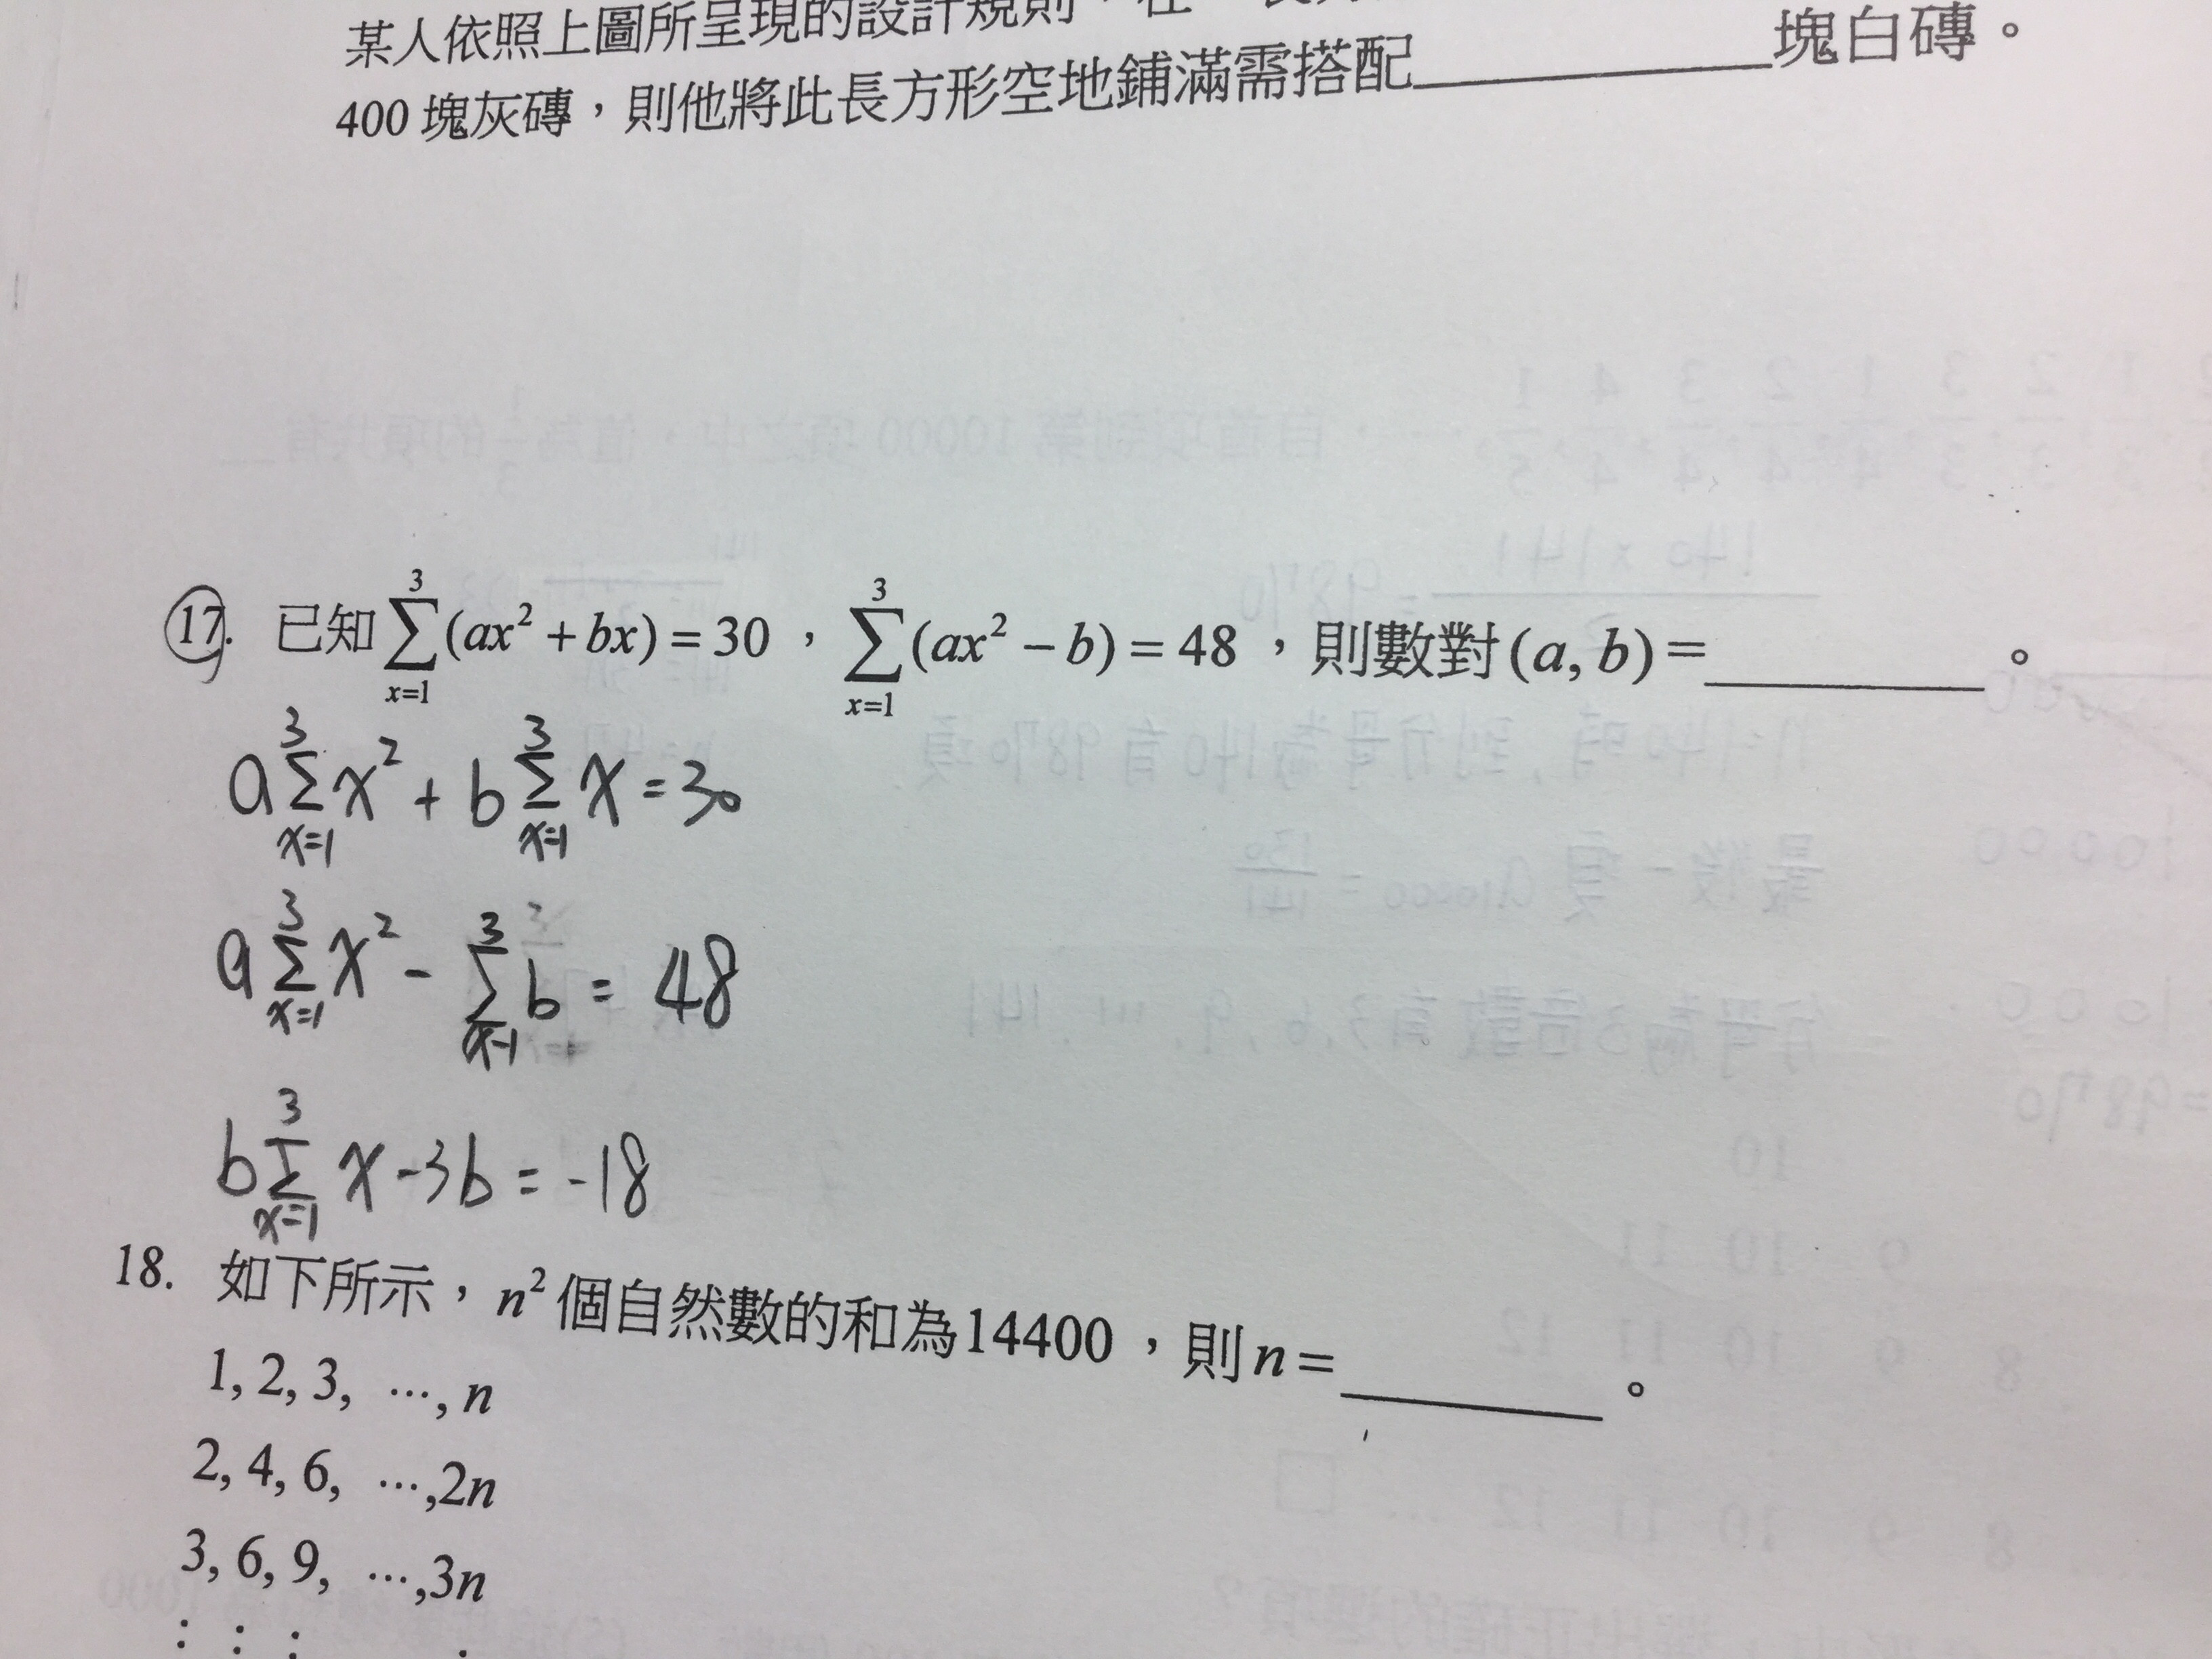 某人依照上圖所呈現的設計規則，在一長
400 塊灰磚，則他將此長方形空地鋪滿需搭配__________塊白磚。
17. 已知 \sum_{x=1}^{3}(ax² + bx) = 30，\sum_{x=1}^{3}(ax² − b) = 48，則數對 (a, b) = ________。
a\sum_{x=1}^{3} x² + b\sum_{x=1}^{3} x = 30
a\sum_{x=1}^{3} x² - \sum_{x=1}^{3} b = 48
b\sum_{x=1}^{3} x - 3b = -18
18. 如下所示，n² 個自然數的和為14400，則 n = ________。
1, 2, 3, …, n
2, 4, 6, …,2n
3, 6, 9, …,3n
: : :